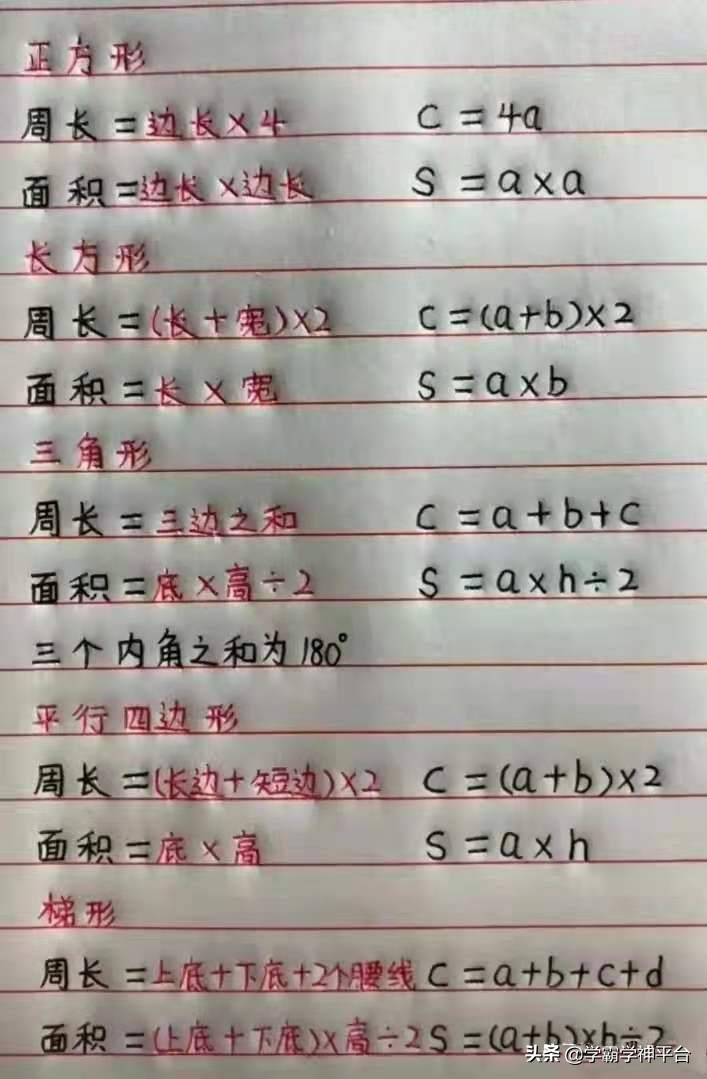 正方形
周长=边长×4 C=4a
面积=边长×边长 S=a×a
长方形
周长=(长+宽)×2 C=(a+b)×2
面积=长×宽 S=a×b
三角形
周长=三边之和 C=a+b+c
面积=底×高÷2 S=a×h÷2
三个内角之和为180°
平行四边形
周长=(长边+短边)×2 C=(a+b)×2
面积=底×高 S=a×h
梯形
周长=上底+下底+2个腰线 C=a+b+c+d
面积=(上底+下底)×高÷2 S=(a+b)×h÷2
头条@学霸学神平台